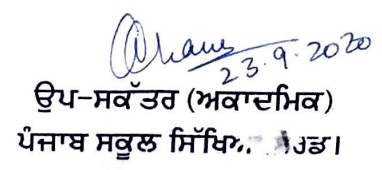 23.9.2020
ਉਪ-ਸਕੱਤਰ (ਅਕਾਦਮਿਕ)
ਪੰਜਾਬ ਸਕੂਲ